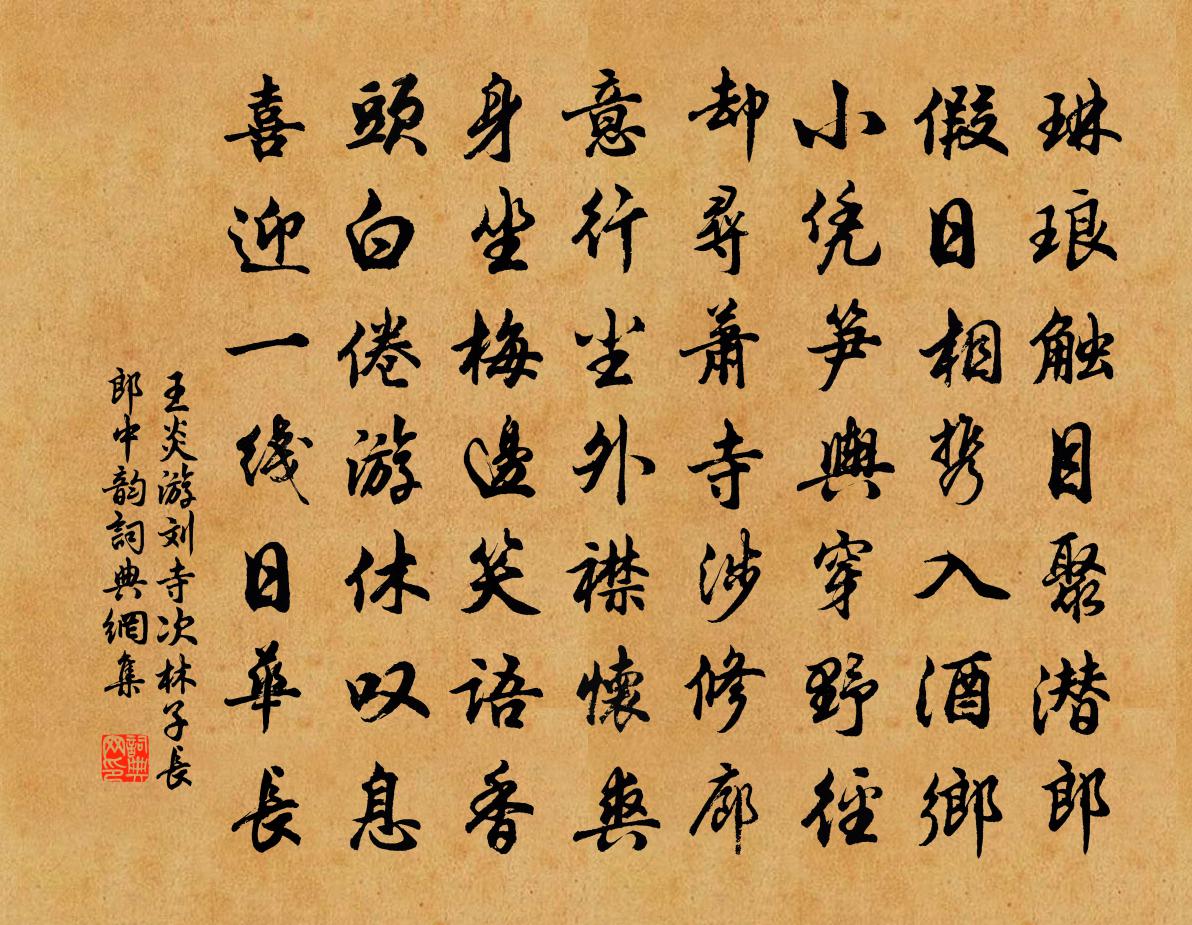 琳琅触目聚潜郎
假日相携入酒鄉
小凭笋輿穿野徑
却尋蕭寺涉修廊
意行尘外襟懷爽
身坐梅邊笑語香
頭白倦游休叹息
喜迎一线日華長
王炎游刘寺次林子長
郎中韵詞典網集
詞典
网印